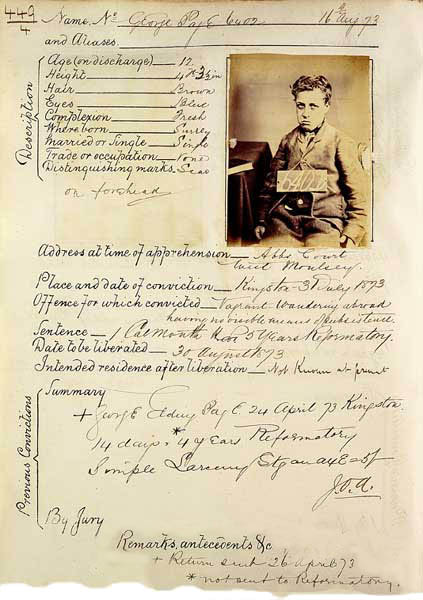 443
4
Name, No. George Page 6402 16th Aug 73
and Aliases
Description
Age (on discharge) — 12
Height — 4 ft 3 ½ in
Hair — Brown
Eyes — Blue
Complexion — Fresh
Where born — Surrey
Married or Single — Single
Trade or occupation — None
Distinguishing marks — Scar
on forehead
6402
Address at time of apprehension — Abbs Court
West Moulsey.
Place and date of conviction — Kingston 31 July 1873
Offence for which convicted — Vagrant Wandering abroad
having no visible means of subsistence.
Sentence — 1 Cal Month 5 Years Reformatory.
Date to be liberated — 30 August 1873
Intended residence after liberation — Not Known at present
Previous Convictions
Summary
+ George Page 24 April 73 Kingston.
14 days * 4 years Reformatory
Simple Larceny
J.O.A.
By Jury
Remarks, antecedents &c
+ Return sent 26 April 73
* not sent to Reformatory.